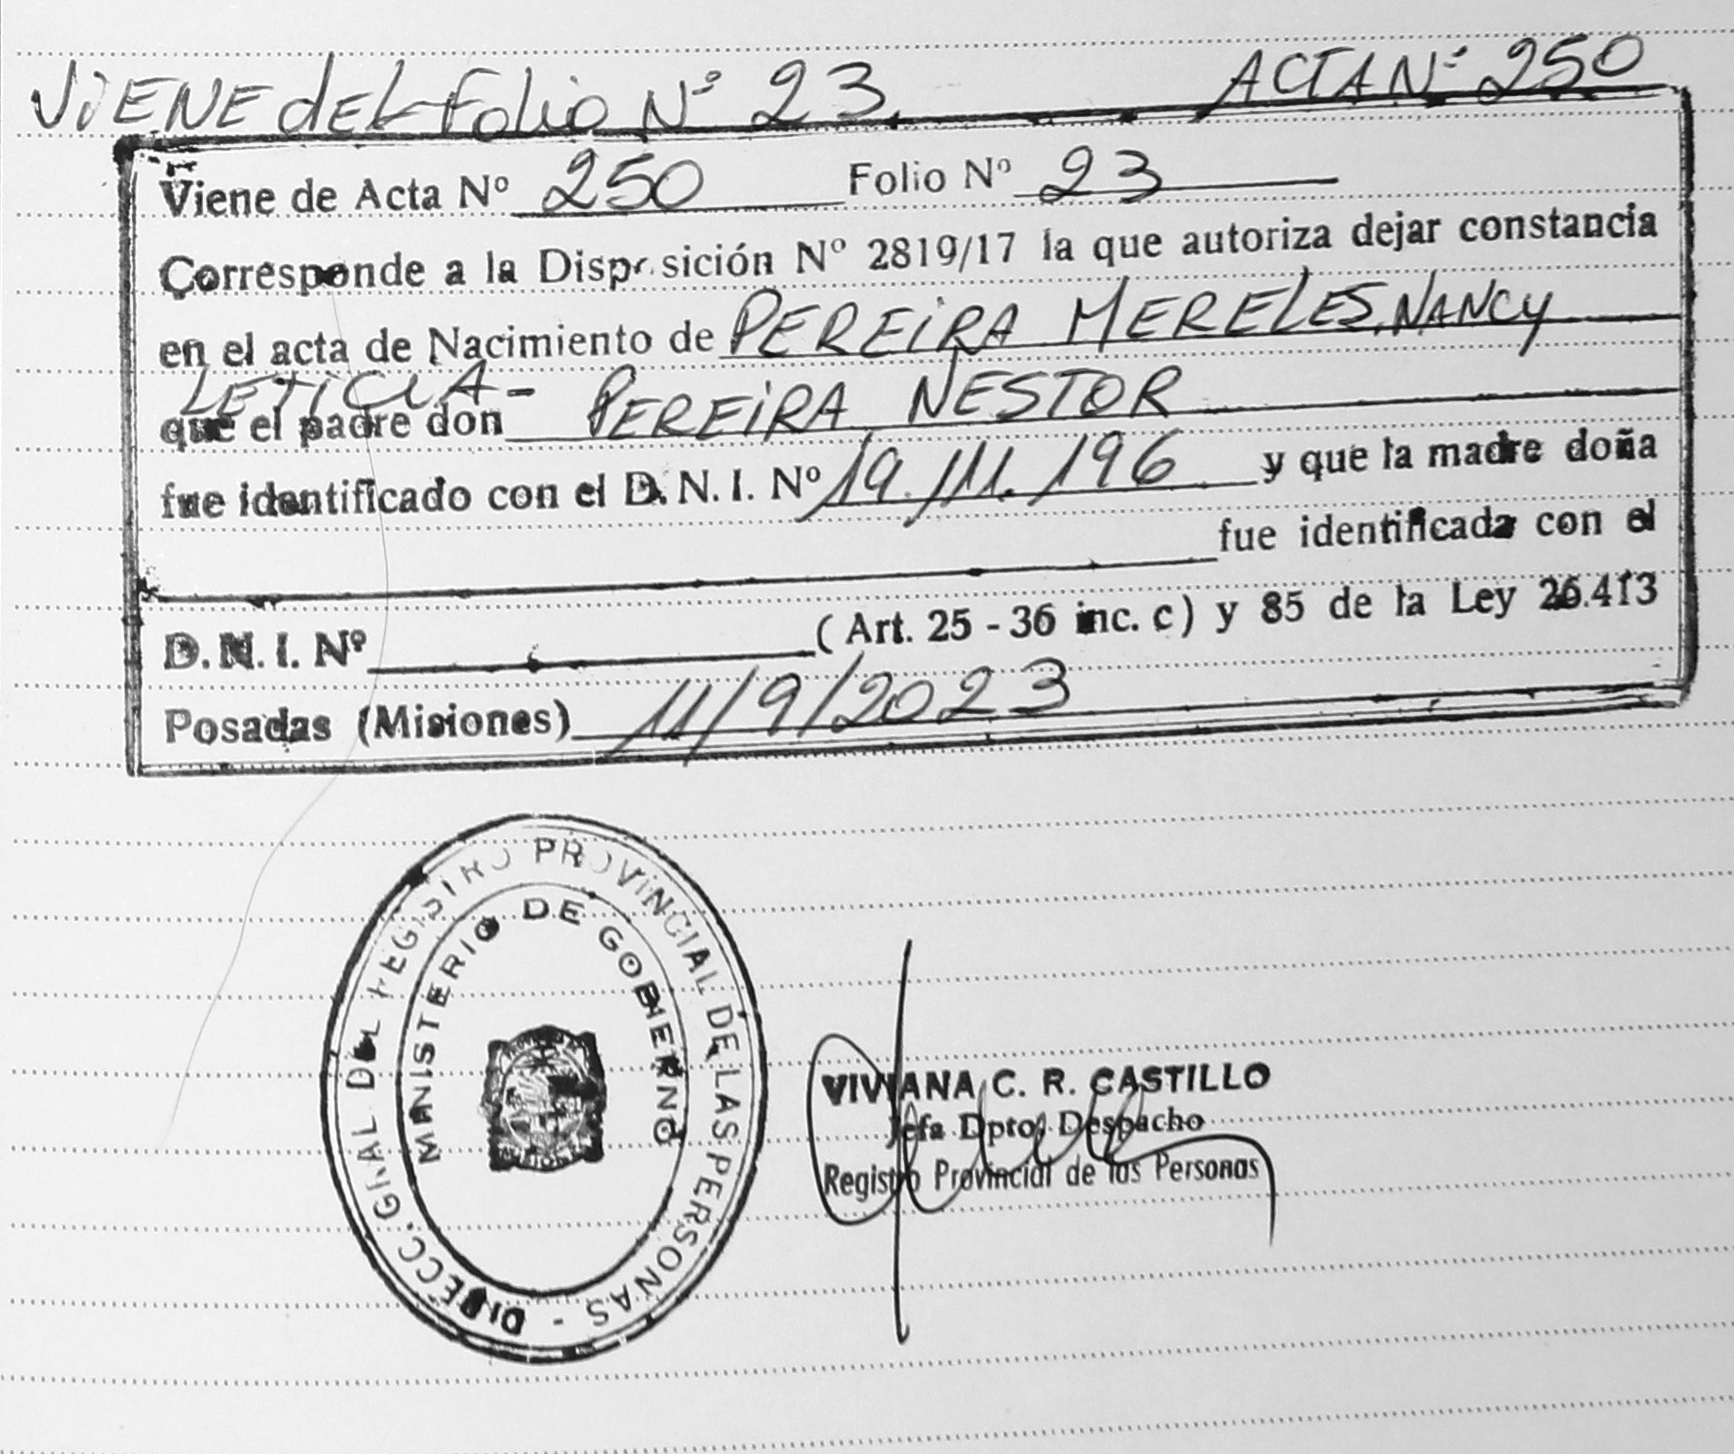 VIENE dEL Folio Nº 23. ACTA Nº 250
Viene de Acta Nº 250 Folio Nº 23
Corresponde a la Disposición Nº 2819/17 la que autoriza dejar constancia
en el acta de Nacimiento de PEREIRA MERELES, NANCY
LETICIA -
que el padre don PEREIRA NESTOR
fue identificado con el D. N. I. Nº 19.111.196 y que la madre doña
fue identificada con el
D. N. I. Nº (Art. 25 - 36 inc. c) y 85 de la Ley 26.413
Posadas (Misiones) 11/9/2023
DIRECC. GRAL DEL REGISTRO PROVINCIAL DE LAS PERSONAS -
MINISTERIO DE GOBIERNO
VIVIANA C. R. CASTILLO
Jefa Dpto. Despacho
Registro Provincial de las Personas